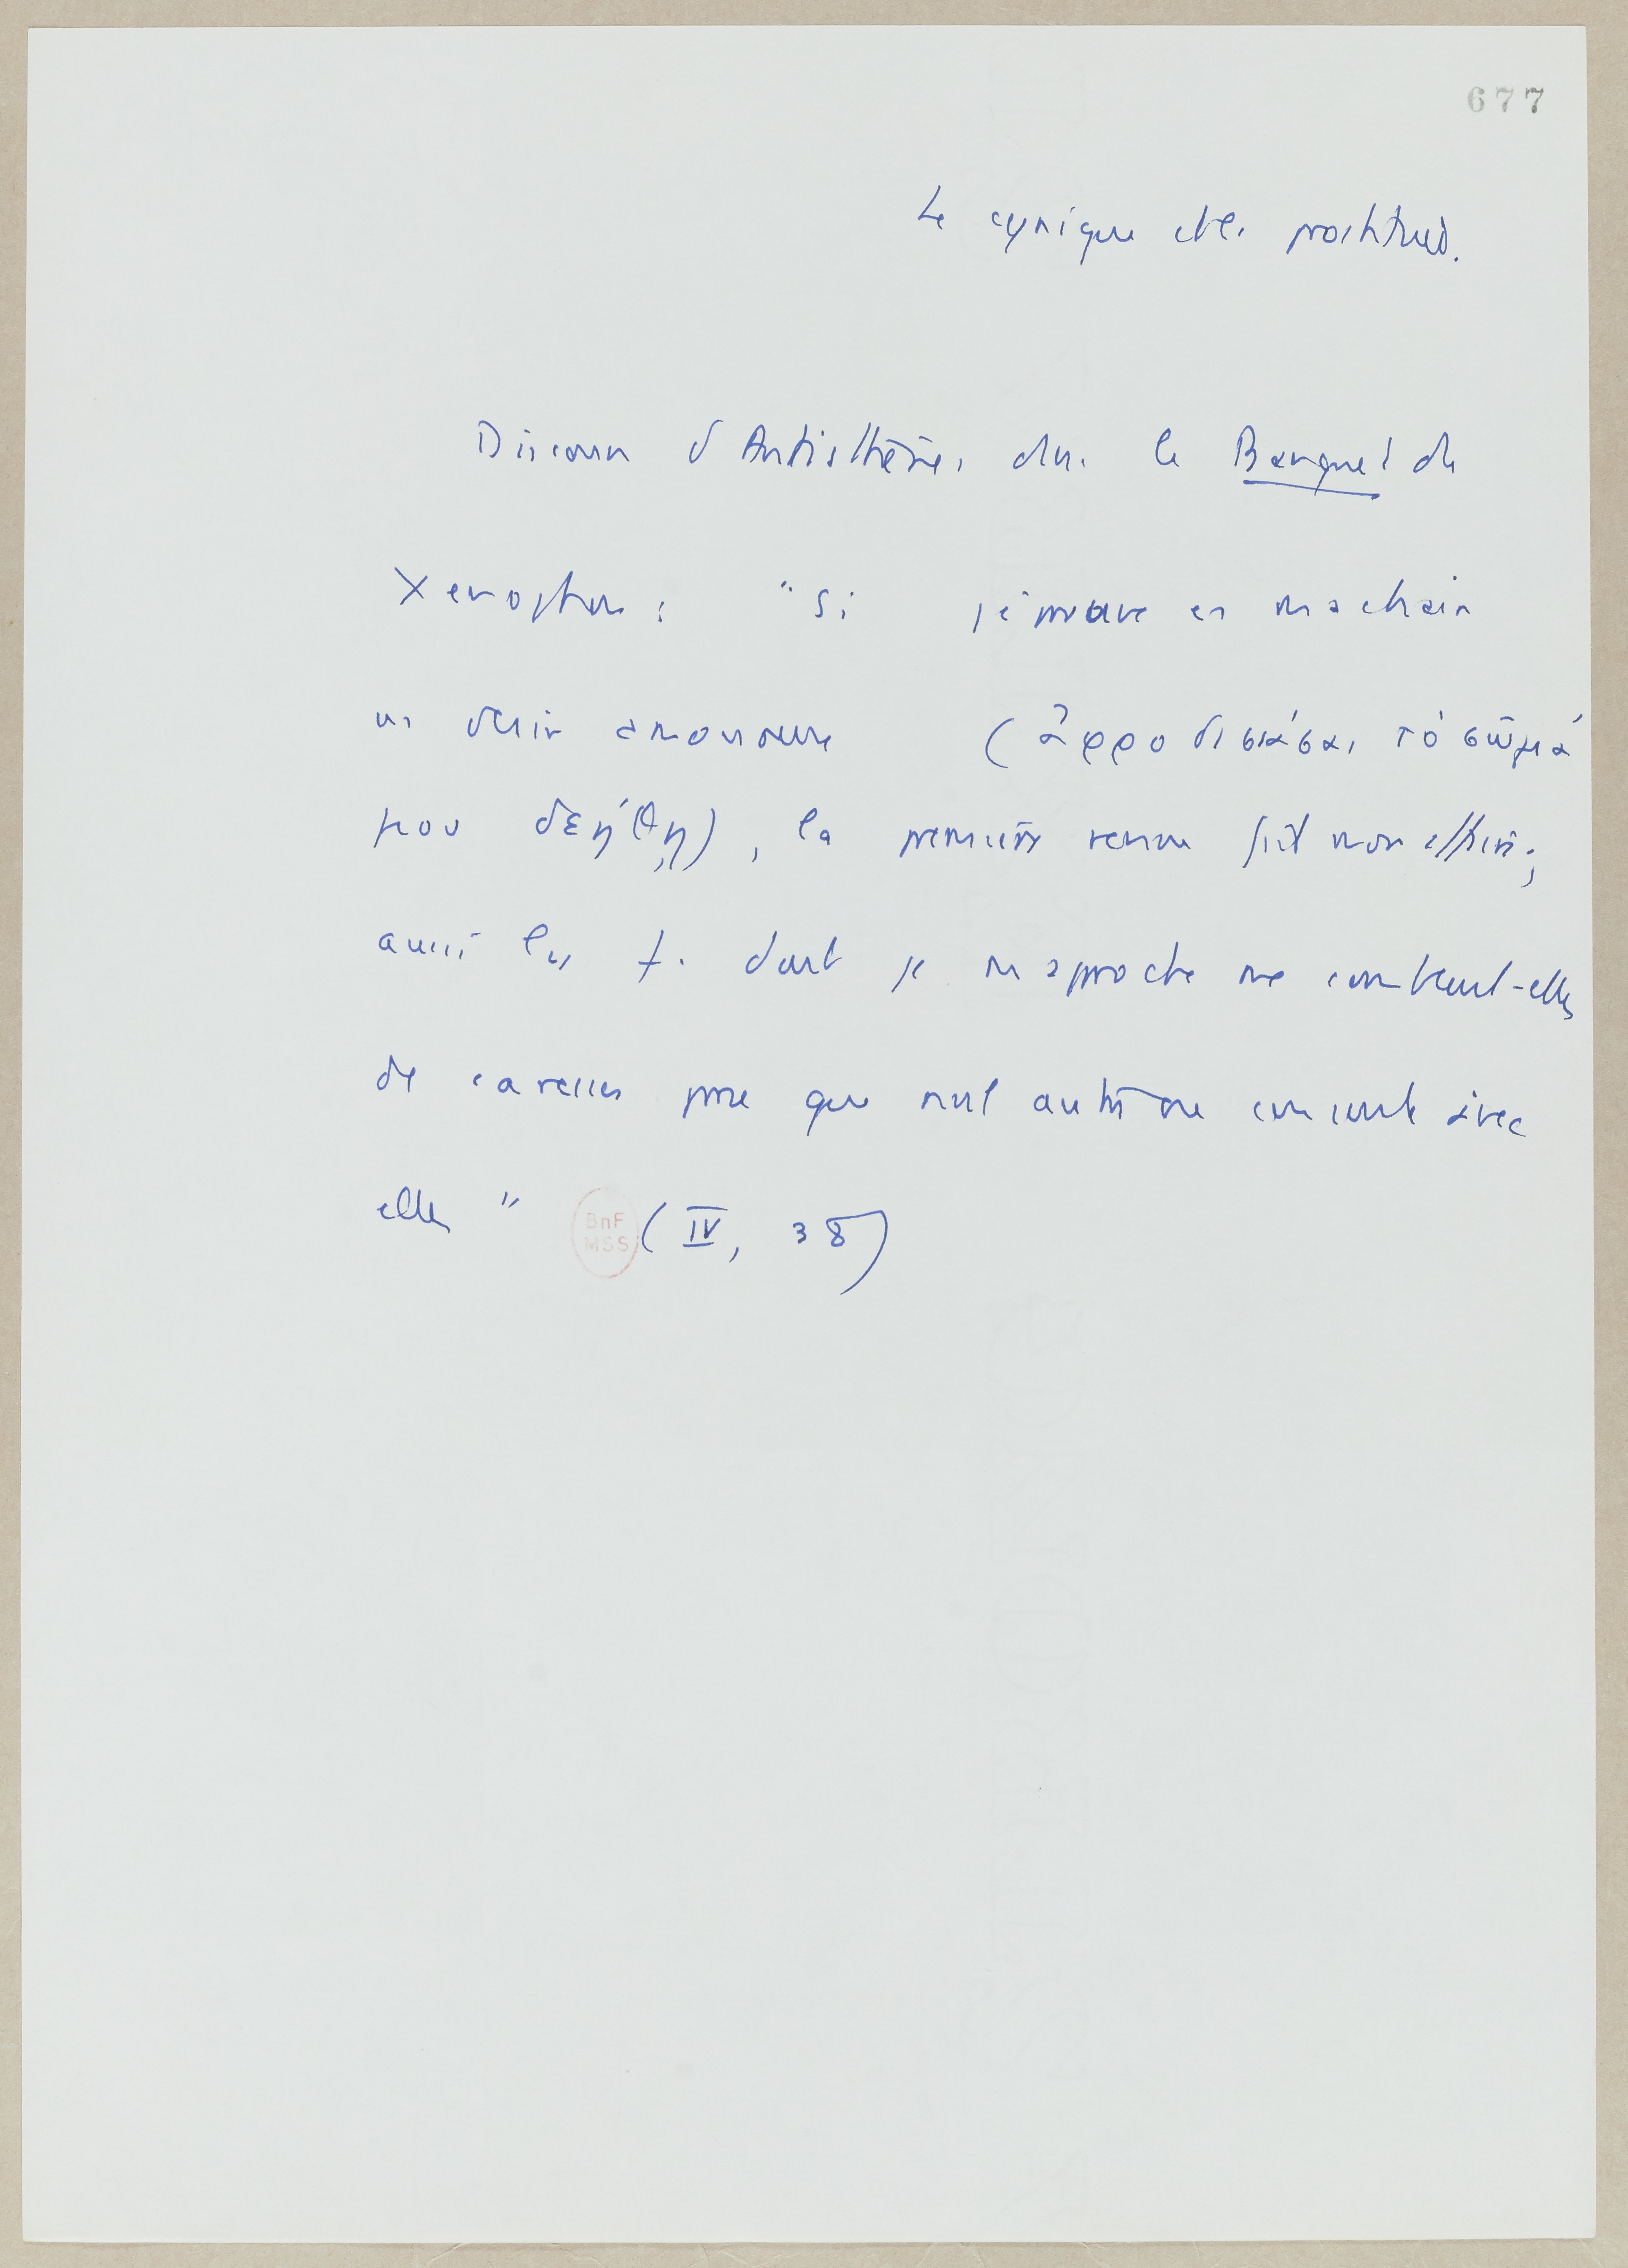 677
Le cynique et les prostituées.
Discours d'Antisthène, dans le Banquet de
Xenophon : "Si j'éprouve en ma chair
un désir amoureux (ἀφροδισιάσαι τὸ σῶμά
μου δεηθῇ), la première venue fait mon affaire ;
aussi les f. dont je m'approche me comblent-elles
de caresses parce que nul autre ne consent avec
elles" (IV, 38)
BnF
MSS